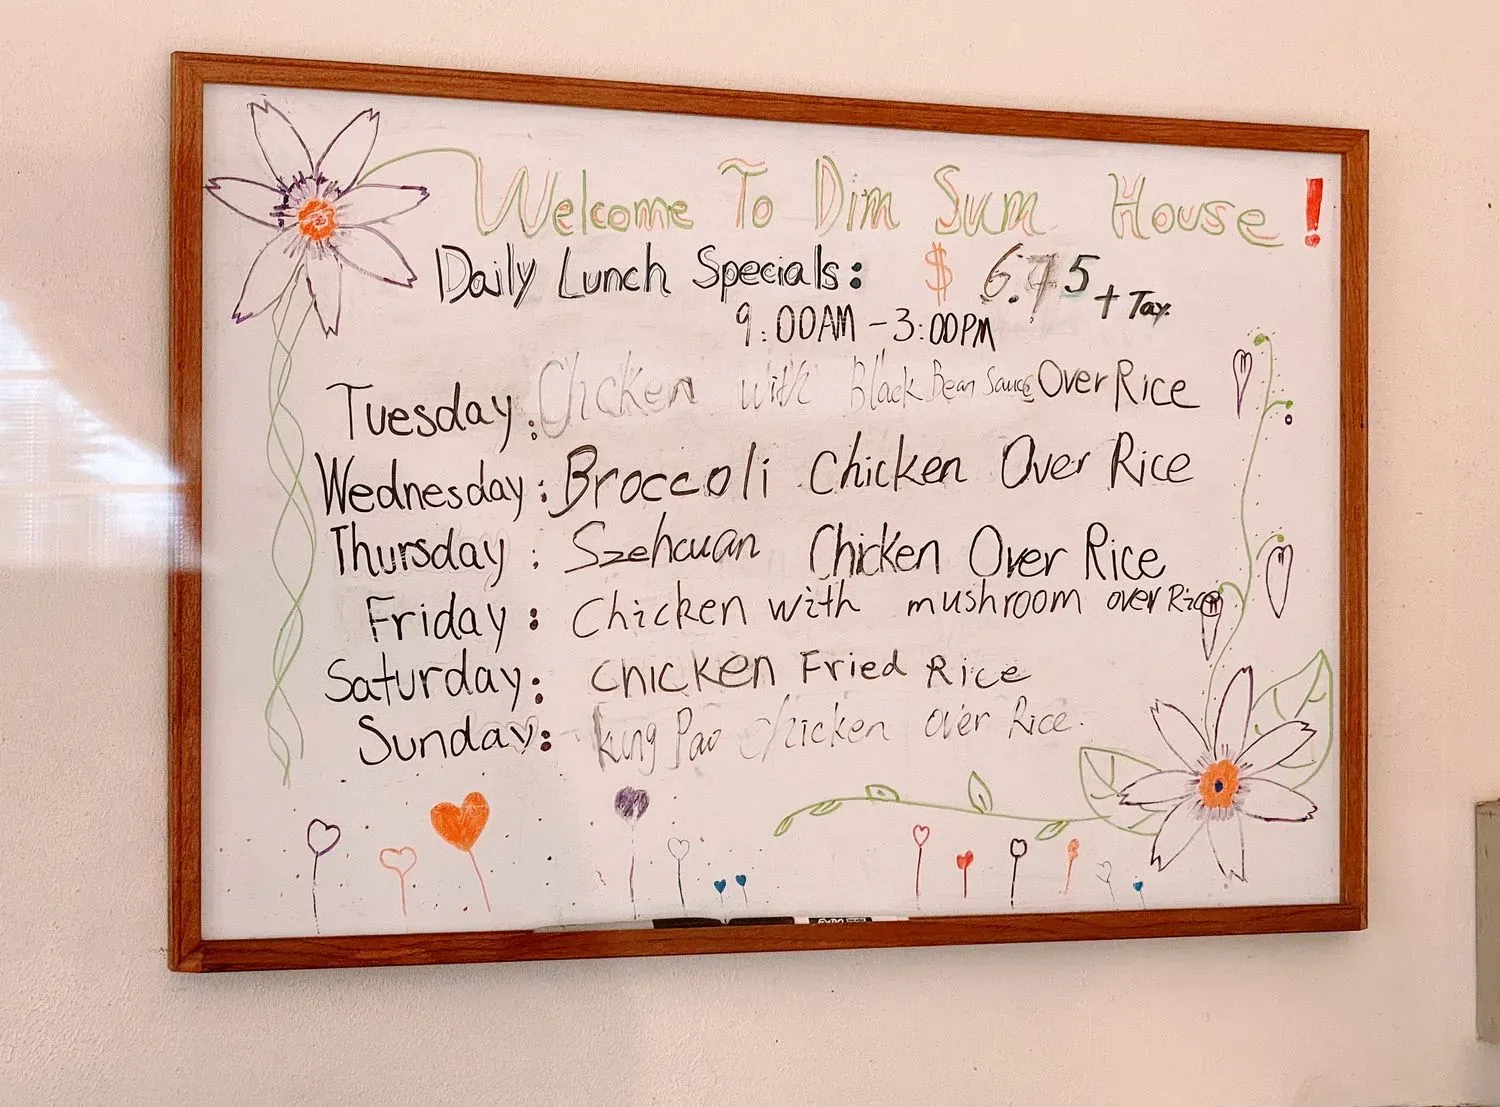 Welcome To Dim Sum House!
Daily Lunch Specials: $ 6.75 + Tax.
9:00AM - 3:00PM
Tuesday: Chicken with Black Bean Sauce Over Rice
Wednesday: Broccoli Chicken Over Rice
Thursday: Szehcuan Chicken Over Rice
Friday: Chicken with mushroom over Rice
Saturday: Chicken Fried Rice
Sunday: kung Pao Chicken over Rice.
EXPO